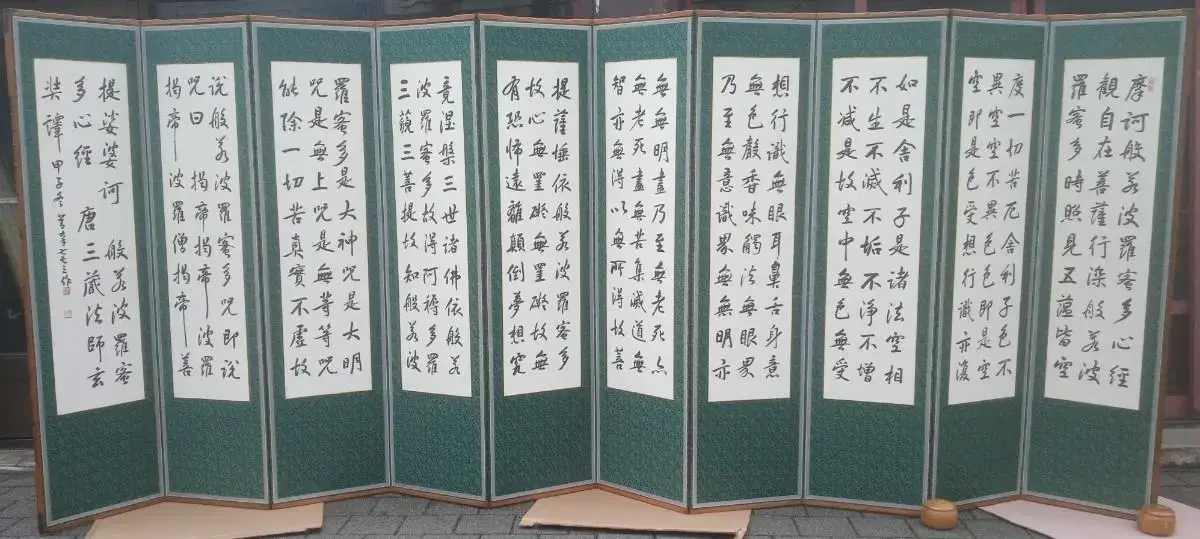 摩訶般若波羅蜜多心經
觀自在菩薩行深般若波
羅蜜多時照見五蘊皆空
度一切苦厄舍利子色不
異空空不異色色即是空
空即是色受想行識亦復
如是舍利子是諸法空相
不生不滅不垢不淨不增
不減是故空中無色無受
想行識無眼耳鼻舌身意
無色聲香味觸法無眼界
乃至無意識界無無明亦
無無明盡乃至無老死亦
無老死盡無苦集滅道無
智亦無得以無所得故菩
提薩埵依般若波羅蜜多
故心無罣礙無罣礙故無
有恐怖遠離顛倒夢想究
竟涅槃三世諸佛依般若
波羅蜜多故得阿耨多羅
三藐三菩提故知般若波
羅蜜多是大神呪是大明
呪是無上呪是無等等呪
能除一切苦真實不虛故
說般若波羅蜜多呪即說
呪曰 揭帝揭帝 波羅
揭帝 波羅僧揭帝 菩
提娑婆訶 般若波羅蜜
多心經 唐三藏法師玄
奘譯 甲子冬